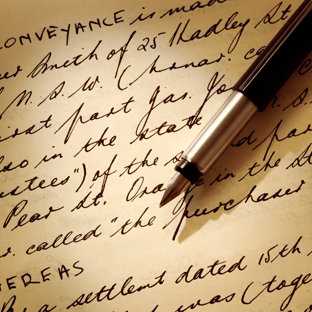 CONVEYANCE is made
Smith of 25 Hadley St
N.S.W. (hinar.
first part Gas. Jo
also in the state
ustees") of the s d par
Pear St. Ora in the St
r. called "the purchaser
EREAS
a settlemt dated 15th
was (toge